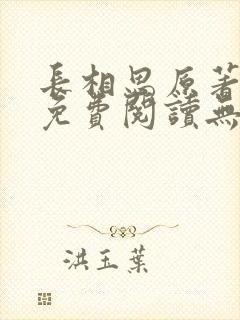 長相思原著
免費閱讀無
洪玉葉